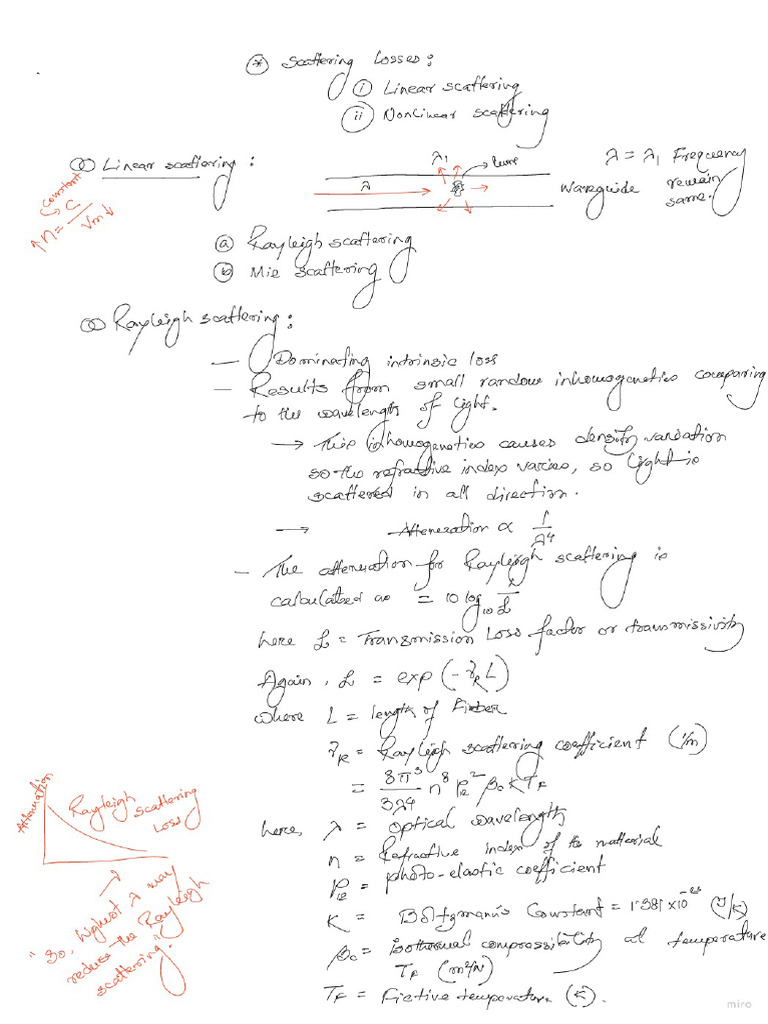 * Scattering Losses:
i Linear scattering
ii Nonlinear scattering
Linear scattering:
λ1
λ
λ = λ1 Frequency
remain
same.
Waveguide
constant
↑n = C / Vm↓
a Rayleigh scattering
b Mie scattering
Rayleigh scattering:
— Dominating intrinsic loss
— Results from small random inhomogenetics comparing
to the wavelength of light.
→ This inhomogenetics causes density variation
so the refractive index varies, so light is
scattered in all direction.
→ Attenuation ∝ 1/λ⁴
— The attenuation for Rayleigh scattering is
calculated as = 10 log₁₀ 1/ℒ
here ℒ = Transmission Loss factor or transmissivity
Again, ℒ = exp(-γR L)
where L = length of Fiber
γR = Rayleigh scattering coefficient (1/m)
= 8π³/3λ⁴ n⁸ P₁₂² βc K TF
here, λ = optical wavelength
n = Refractive index of the material
P₁₂ = photo-elastic coefficient
K = Boltzmann's Constant = 1.381×10⁻²³ (J/K)
βc = Isothermal compressibility at temperature
TF (m²/N)
TF = Fictive temperature (K).
Attenuation
Rayleigh scattering
Loss
"So, highest λ may
reduce the Rayleigh
scattering".
miro